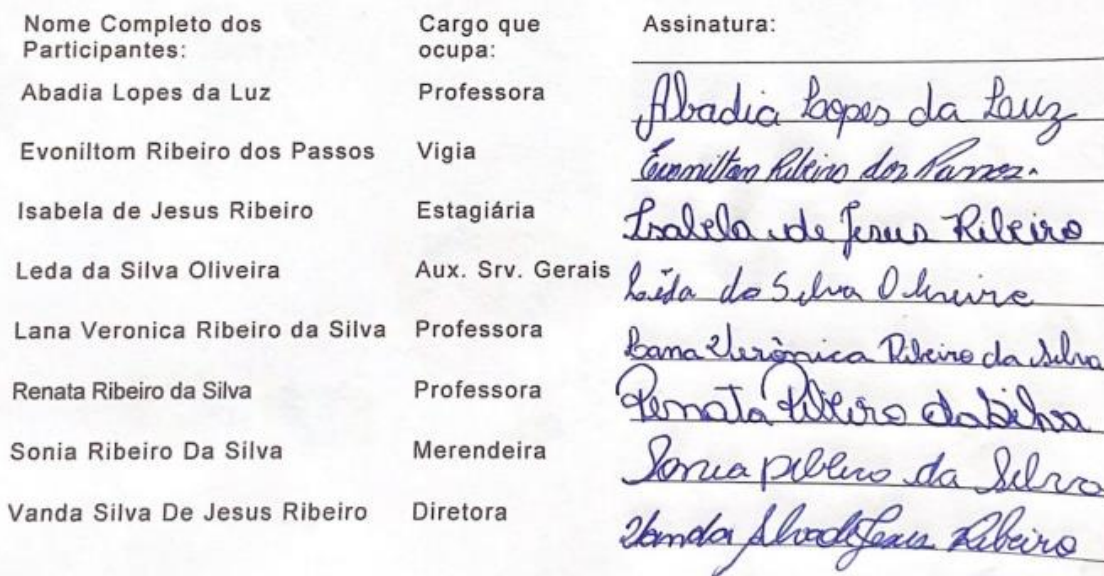 Nome Completo dos Cargo que Assinatura:
Participantes: ocupa:
Abadia Lopes da Luz Professora Abadia Lopes da Luz
Evoniltom Ribeiro dos Passos Vigia Evoniltom Ribeiro dos Passos.
Isabela de Jesus Ribeiro Estagiária Isabela de Jesus Ribeiro
Leda da Silva Oliveira Aux. Srv. Gerais Leida da Silva Oliveira
Lana Veronica Ribeiro da Silva Professora Lana Verônica Ribeiro da Silva
Renata Ribeiro da Silva Professora Renata Ribeiro da Silva
Sonia Ribeiro Da Silva Merendeira Sonia Ribeiro da Silva
Vanda Silva De Jesus Ribeiro Diretora Vanda Silva de Jesus Ribeiro